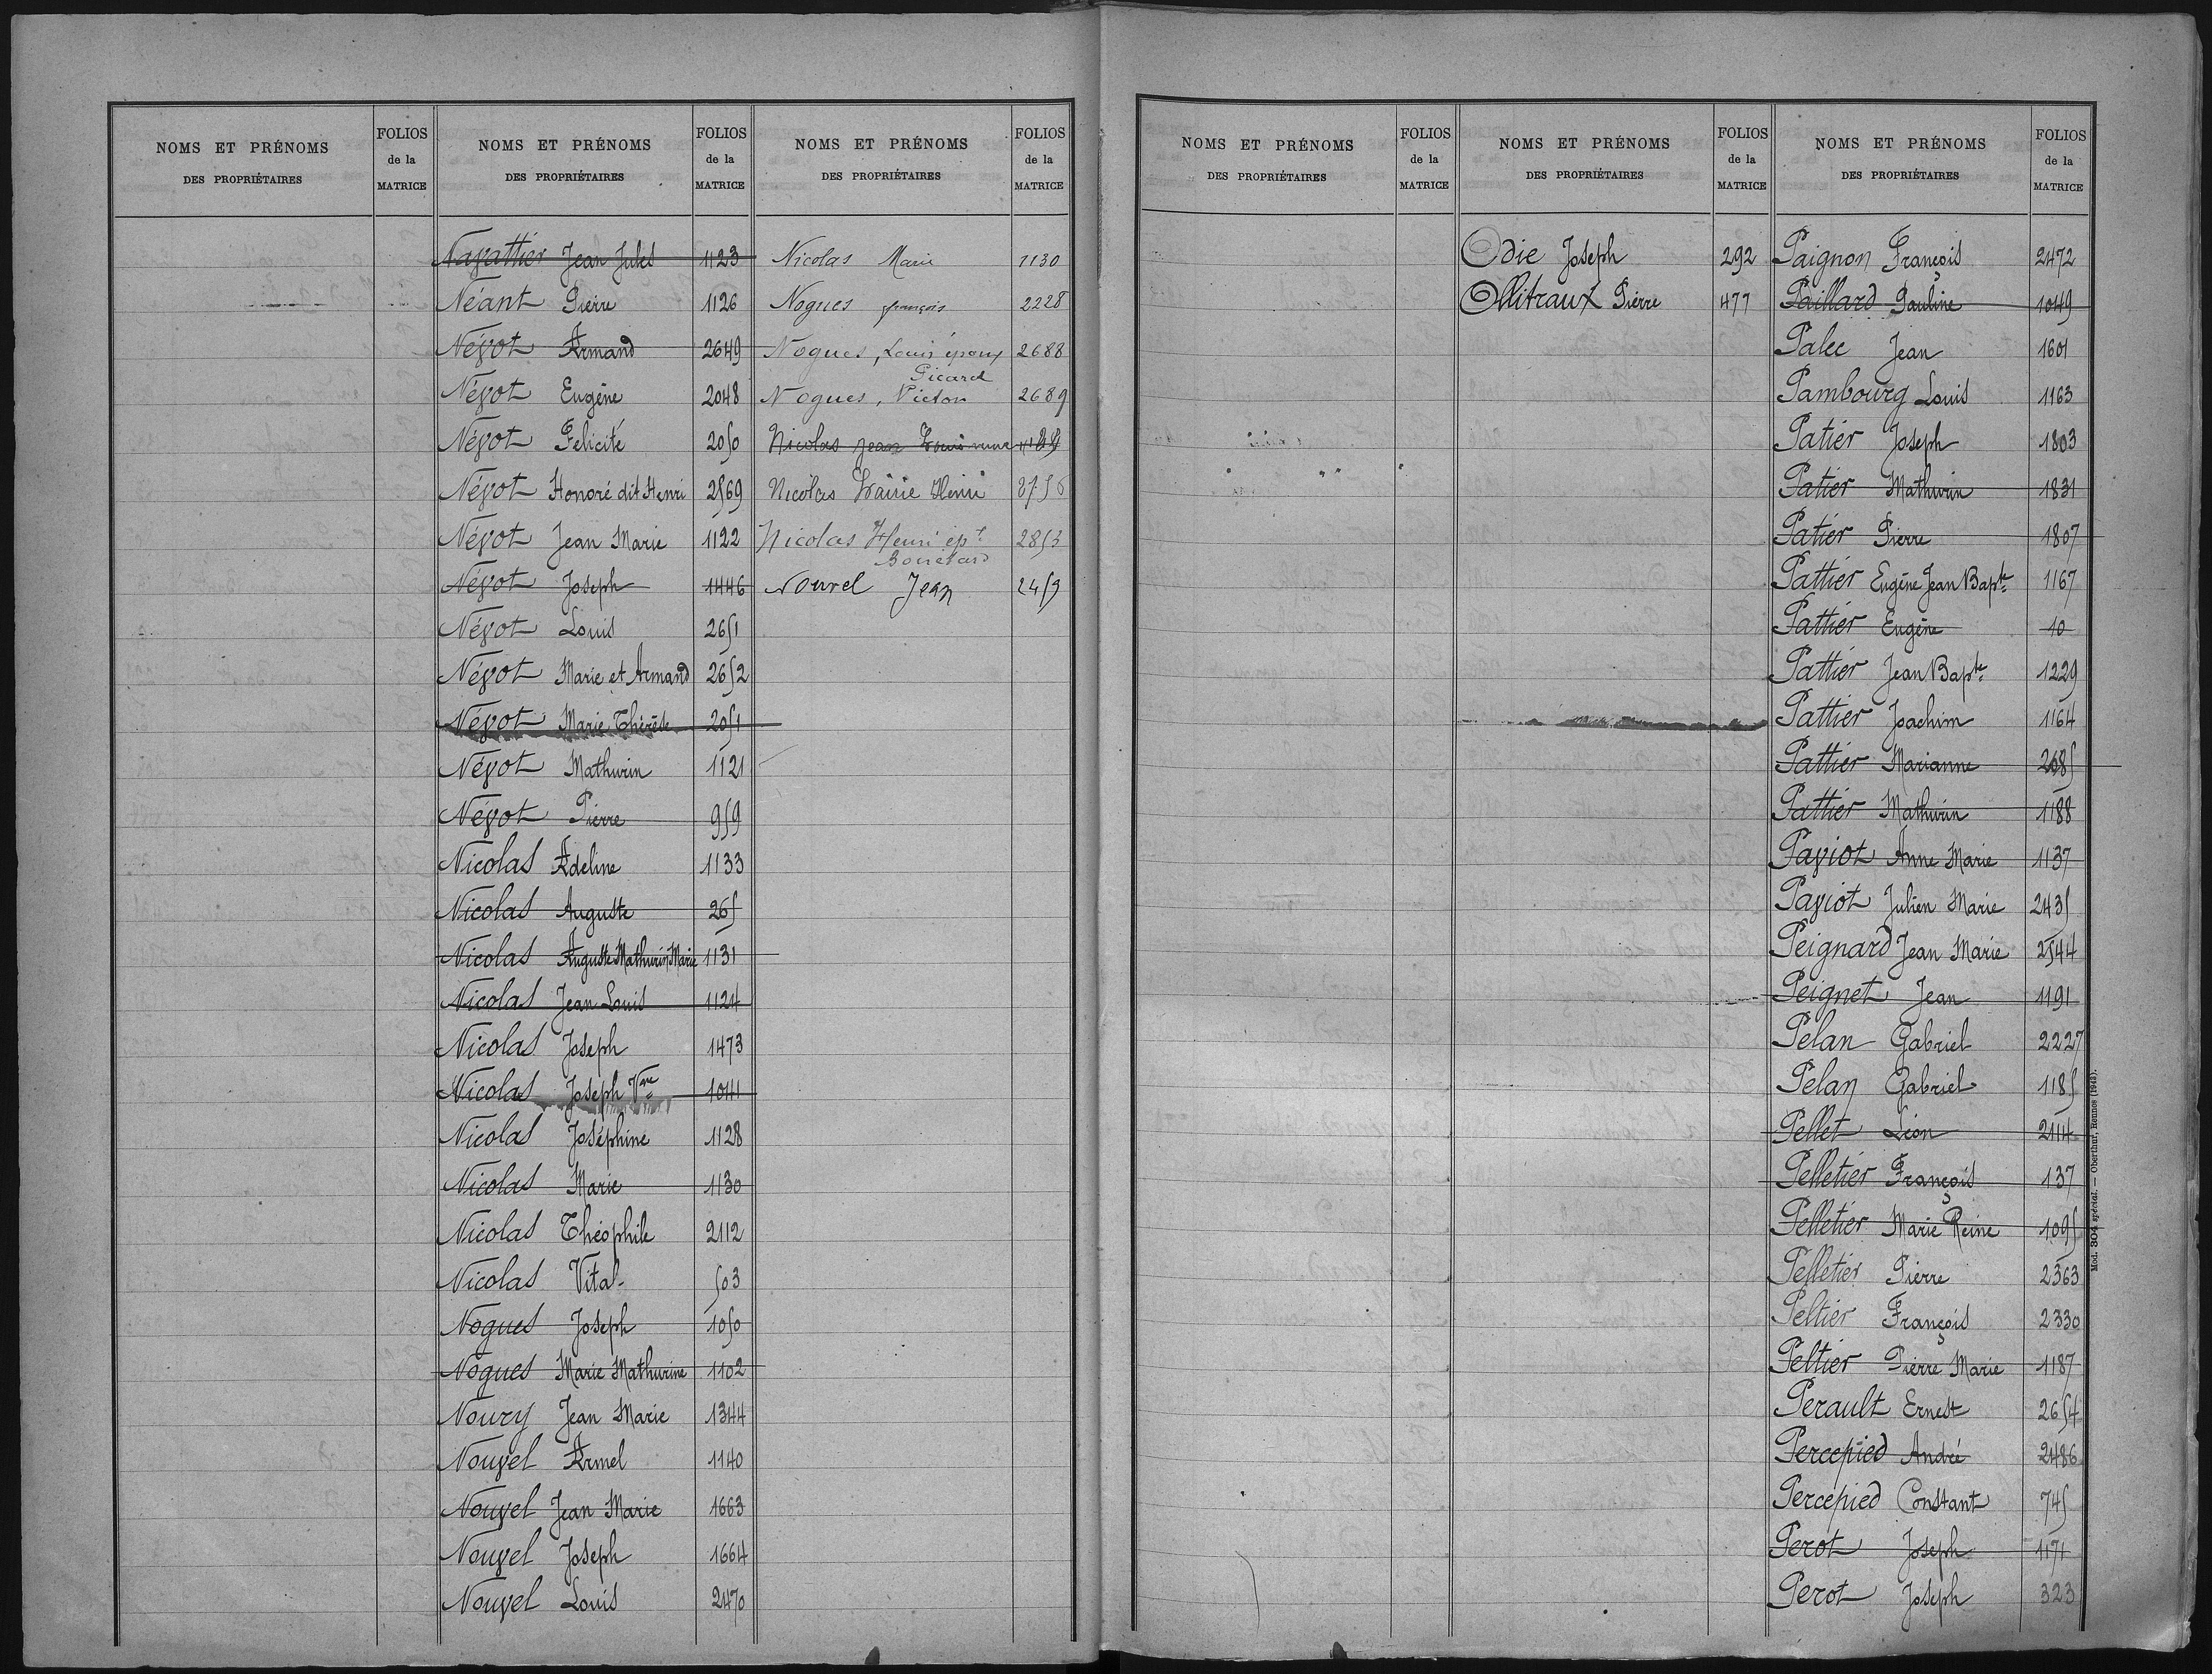 NOMS ET PRÉNOMS
DES PROPRIÉTAIRES
FOLIOS
de la
MATRICE
NOMS ET PRÉNOMS
DES PROPRIÉTAIRES
FOLIOS
de la
MATRICE
NOMS ET PRÉNOMS
DES PROPRIÉTAIRES
FOLIOS
de la
MATRICE
Navattier Jean Jules 1123
Néant Pierre 1126
Névot Armand 2649
Névot Eugène 2048
Névot Felicité 2050
Névot Honoré dit Henri 2569
Névot Jean Marie 1122
Névot Joseph 1446
Névot Louis 2651
Névot Marie et Armand 2652
Névot Marie Thérèse 2051
Névot Mathurin 1121
Névot Pierre 959
Nicolas Adeline 1133
Nicolas Auguste 265
Nicolas Auguste Mathurin Marie 1131
Nicolas Jean Louis 1124
Nicolas Joseph 1473
Nicolas Joseph Vve 1041
Nicolas Joséphine 1128
Nicolas Marie 1130
Nicolas Théophile 2112
Nicolas Vital 503
Nogues Joseph 1050
Nogues Marie Mathurine 1102
Noury Jean Marie 1344
Nouvel Armel 1140
Nouvel Jean Marie 1663
Nouvel Joseph 1664
Nouvel Louis 2470
Nicolas Marie 1130
Nogues françois 2228
Nogues, Louis époux 2688
Picard
Nogues, Victor 2689
Nicolas Jean Louis
Nicolas Henri
Nicolas Henri ép. 2853
Nouvel Jean 2459
NOMS ET PRÉNOMS
DES PROPRIÉTAIRES
FOLIOS
de la
MATRICE
NOMS ET PRÉNOMS
DES PROPRIÉTAIRES
FOLIOS
de la
MATRICE
NOMS ET PRÉNOMS
DES PROPRIÉTAIRES
FOLIOS
de la
MATRICE
Odie Joseph 292
Ollitraux Pierre 477
Paignon François 2472
Paillard Pauline 1049
Palec Jean 1601
Pambourg Louis 1163
Patier Joseph 1803
Patier Mathurin 1831
Patier Pierre 1807
Pattier Eugène Jean Bapte 1167
Pattier Eugène 10
Pattier Jean Bapte 1229
Pattier Joachim 1164
Pattier Marianne 2685
Pattier Mathurin 1188
Paviot Anne Marie 1137
Paviot Julien Marie 2435
Peignard Jean Marie 2544
Peignet Jean 1191
Pelan Gabriel 2227
Pelan Gabriel 1185
Pellet Léon 2114
Pelletier François 137
Pelletier Marie Reine 1095
Pelletier Pierre 2363
Peltier François 2330
Peltier Pierre Marie 1187
Perault Ernest 2654
Percepied André 2486
Percepied Constant 745
Perot Joseph 1171
Perot Joseph 323
Mod. 304 spécial. — Oberthur, Rennes (1943).